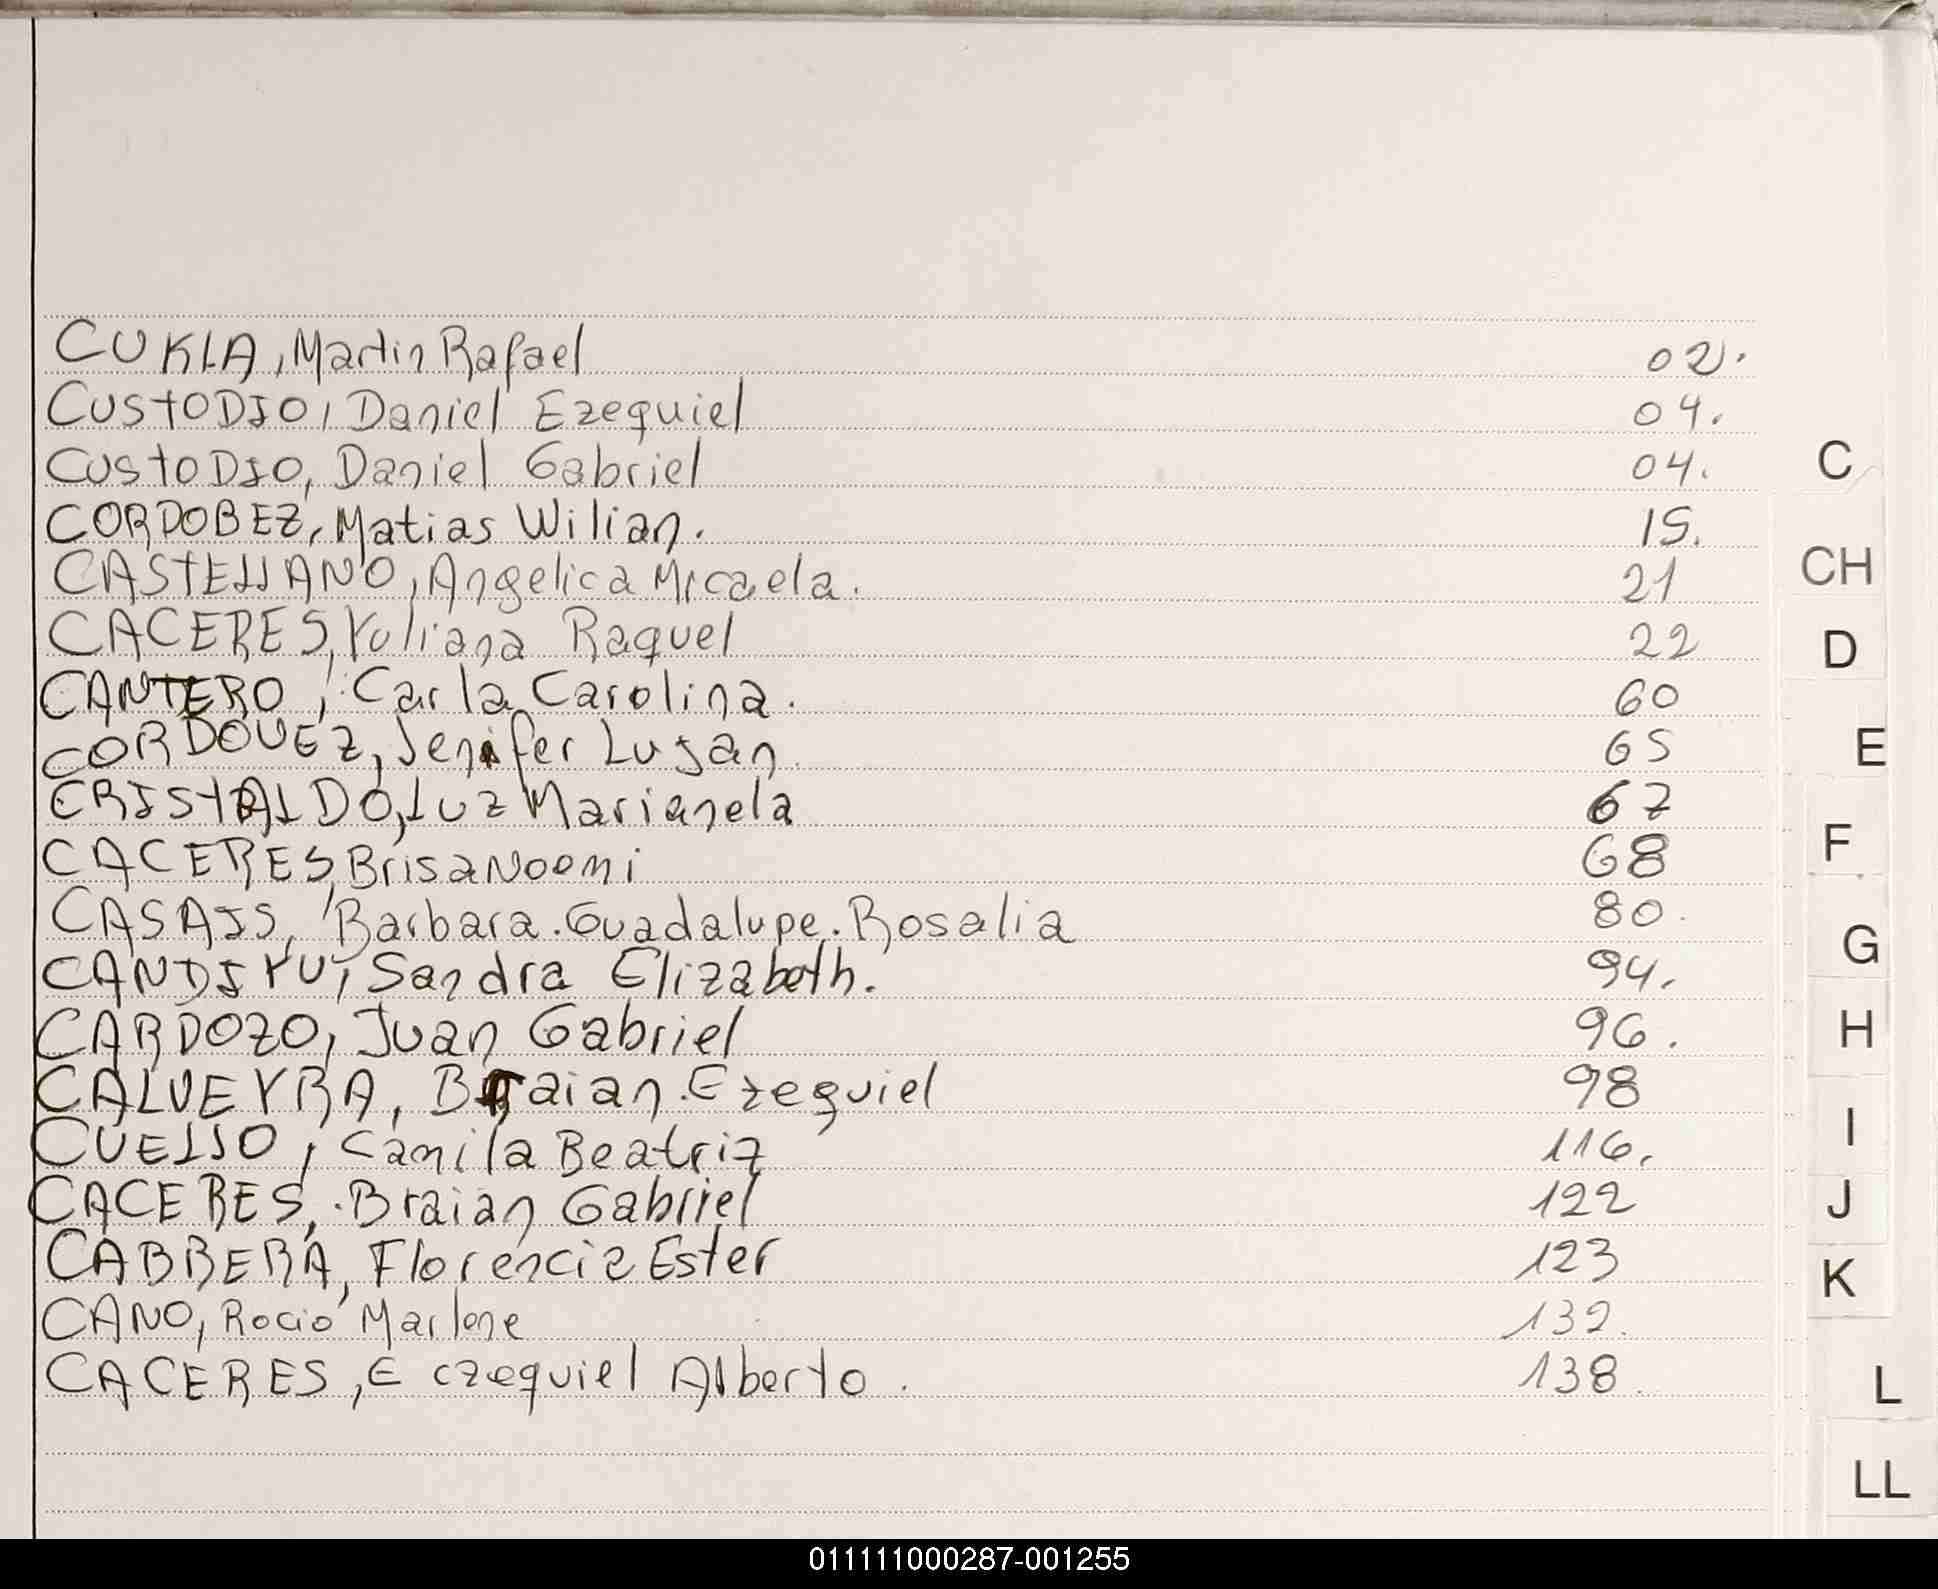 CUKLA, Martin Rafael 02.
CUSTODIO, Daniel Ezequiel 04.
CUSTODIO, Daniel Gabriel 04.
CORDOBEZ, Matias Wilian. 15.
CASTELLANO, Angelica Micaela. 21
CACERES, Yuliana Raquel 22
CANTERO, Carla Carolina. 60
CORDOVEZ, Jenifer Lujan. 65
CRISTALDO, Luz Marianela 67
CACERES, Brisa Noemi 68
CASAIS, Barbara. Guadalupe. Rosalia 80.
CANDIYU, Sandra Elizabeth. 94.
CARDOZO, Juan Gabriel 96.
CALVEYRA, Braian Ezequiel 98
CUELLO, Camila Beatriz 116.
CACERES, Braian Gabriel 122
CABRERA, Florencia Ester 123
CANO, Rocio Marlene 132.
CACERES, E czequiel Alberto. 138.
C
CH
D
E
F
G
H
I
J
K
L
LL
011111000287-001255